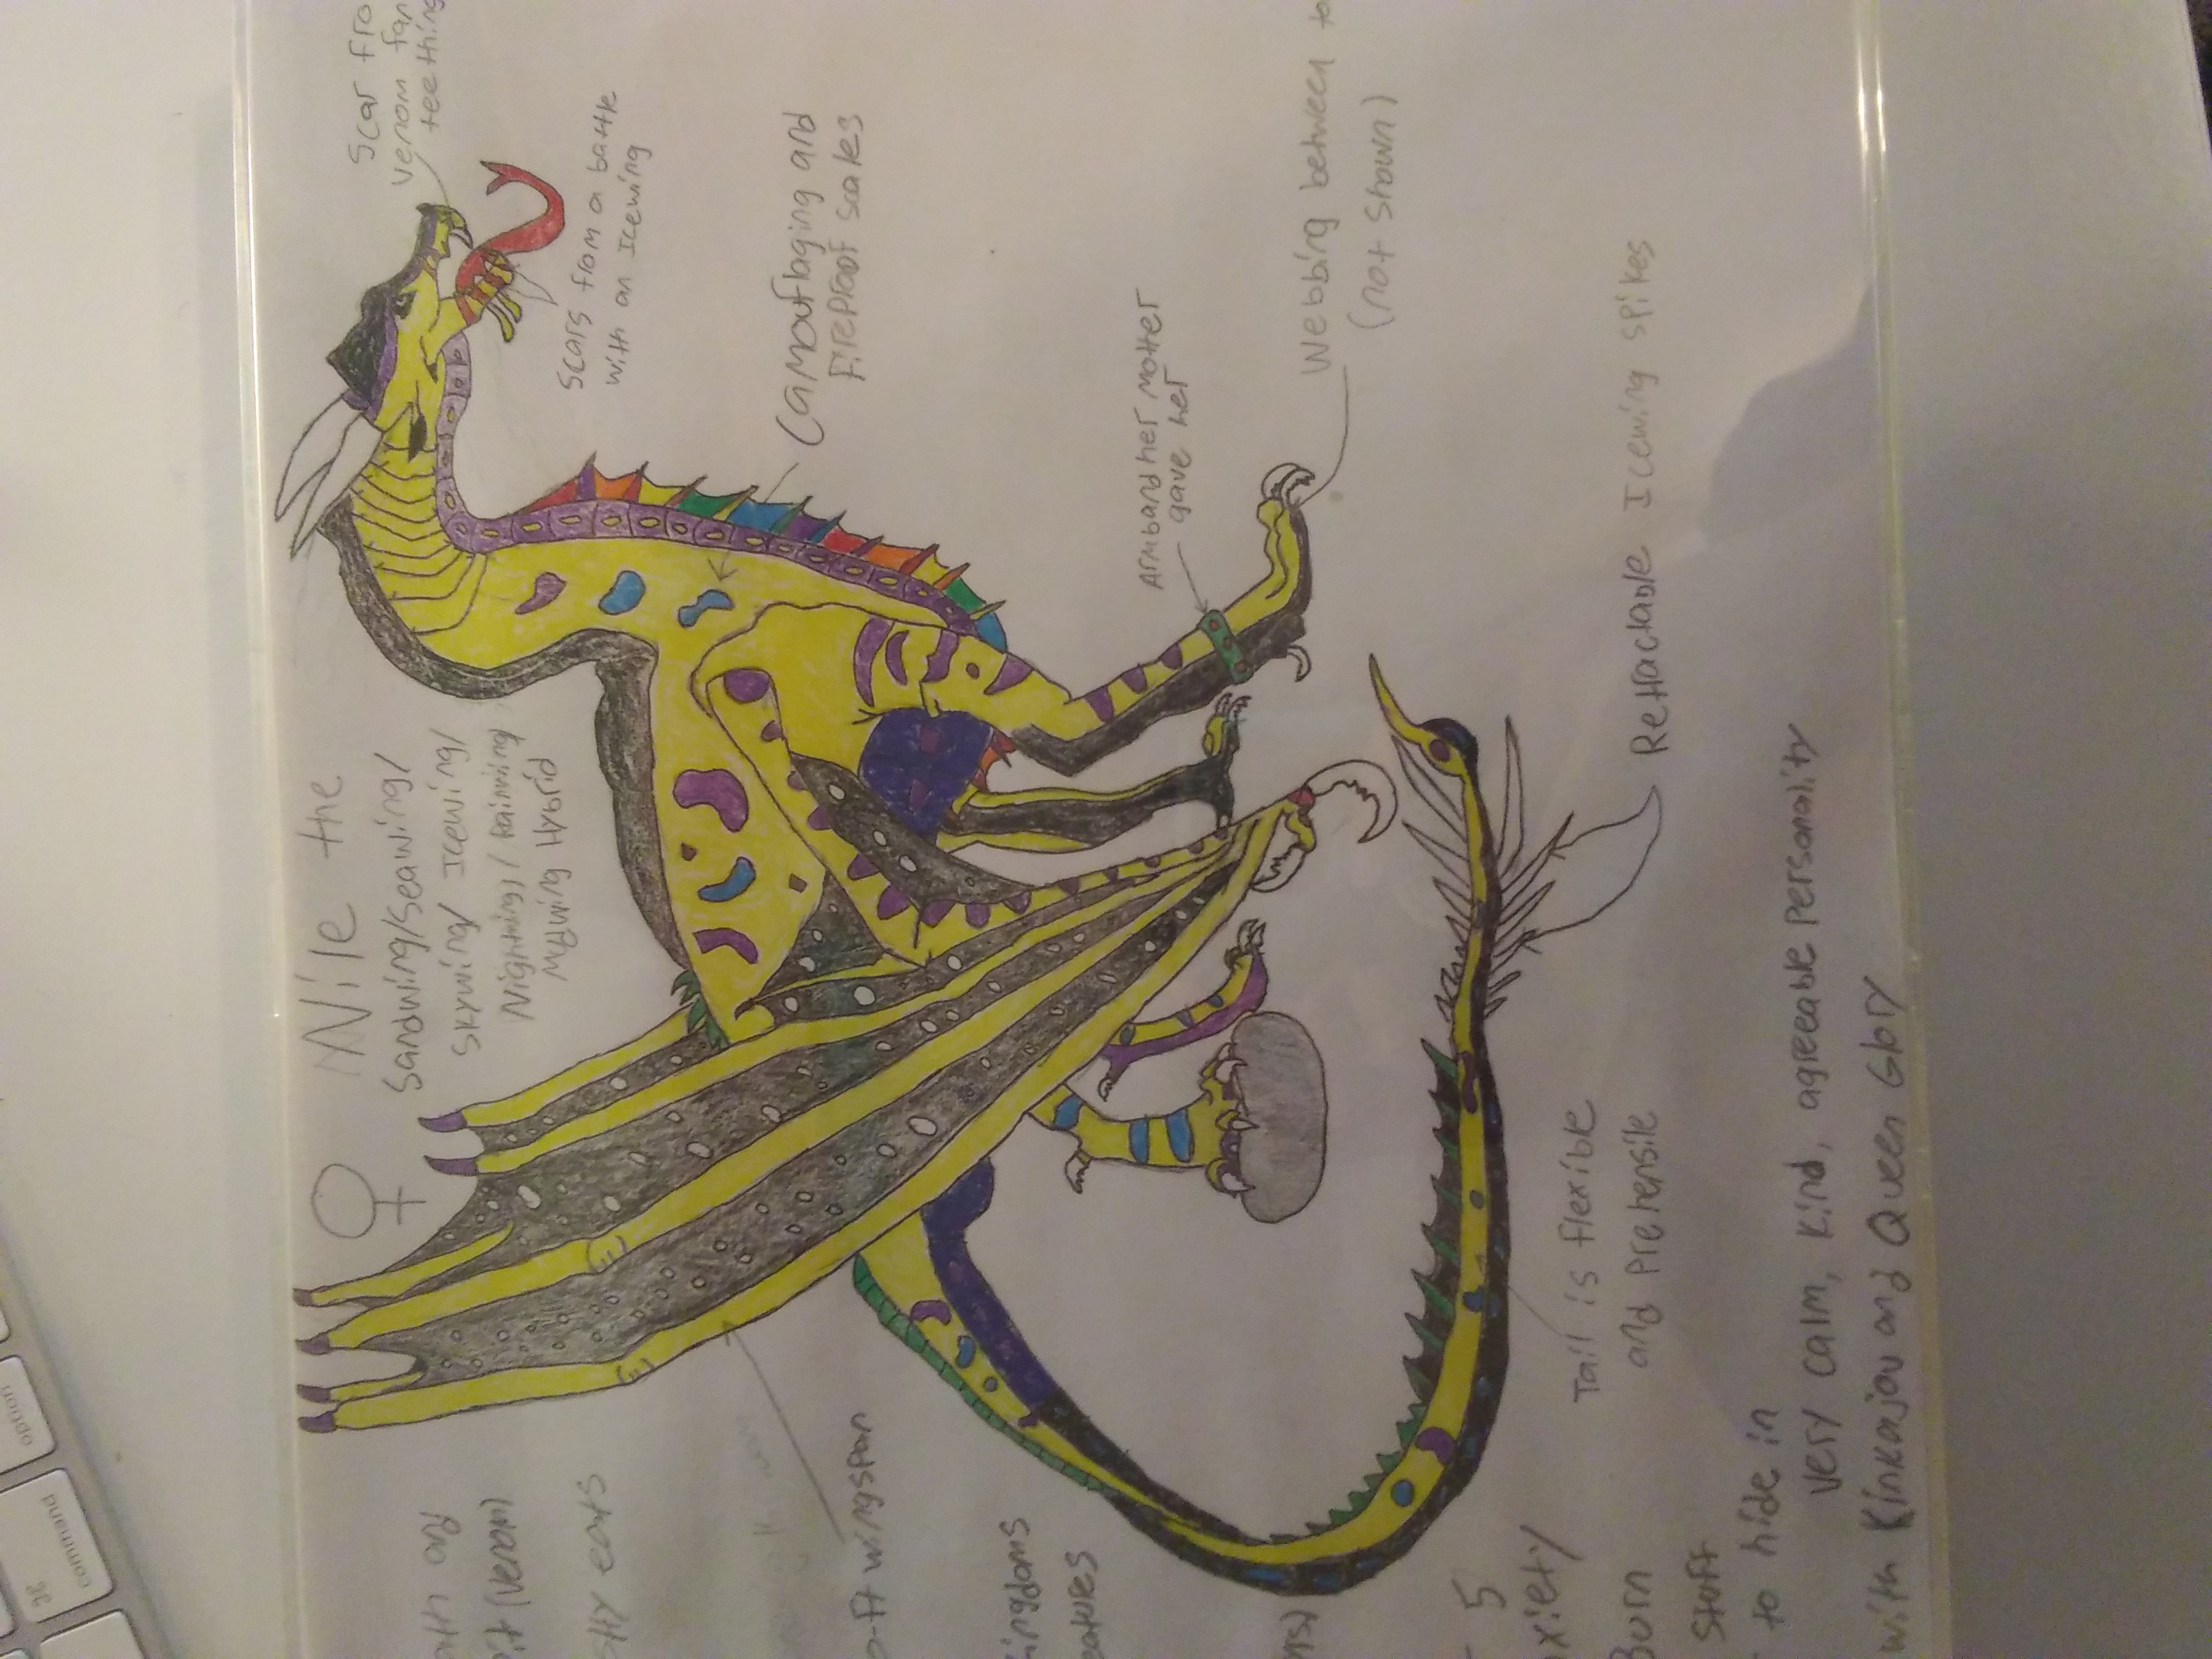 ♀ Nile the
Sandwing/Seawing/
Skywing/Icewing/
Nightwing/Rainwing/
Mudwing Hybrid
Scar fro
venom fan
teething
Scars from a battle
with an Icewing
Camouflaging and
Fireproof scales
Armband her mother
gave her
Webbing between to
(not shown)
Retractable Icewing spikes
Tail is flexible
and prehensile
and
it (venom)
eats
-ft wingspan
ingdoms
eatures
5
xiety
Burn
stuff
to hide in
very calm, kind, agreeable personality
with Kinkajou and Queen Glory
option
⌘
command